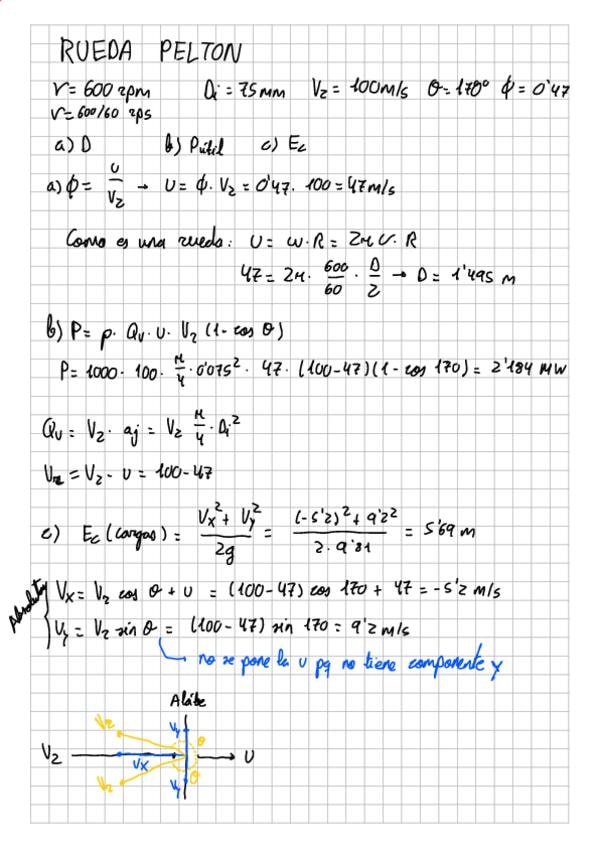 RUEDA PELTON
V = 600 rpm Dⱼ = 75 mm V₂ = 100 m/s θ = 170° ϕ = 0'47
V = 600/60 rps
a) D b) Pútil c) Ec
a) ϕ = U/V₂ → U = ϕ · V₂ = 0'47 · 100 = 47 m/s
Como es una rueda: U = ω · R = 2π V · R
47 = 2π · 600/60 · D/2 → D = 1'495 m
b) P = ρ · Qv · U · V₂ (1 - cos θ)
P = 1000 · 100 · π/4 · 0'075² · 47 · (100-47)(1 - cos 170) = 2'184 MW
Qv = V₂ · aj = V₂ π/4 · Dⱼ²
Vr = V₂ - U = 100 - 47
c) Ec (cargas) = (Vx² + Vy²)/2g = ((-5'2)² + 9'2²)/(2 · 9'81) = 5'69 m
Absolutas
Vx = Vr cos θ + U = (100-47) cos 170 + 47 = -5'2 m/s
Vy = Vr sin θ = (100-47) sin 170 = 9'2 m/s
no se pone la U pq no tiene componente y
Alábe
Vr Vy θ
V₂ Vx U
Vr Vy θ